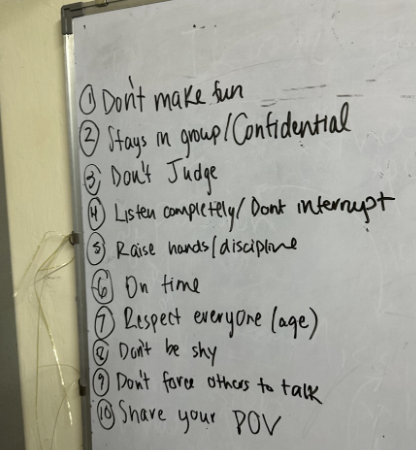 ① Don't make fun
② Stays in group/Confidential
③ Don't Judge
④ Listen completely/Dont interrupt
⑤ Raise hands/discipline
⑥ On time
⑦ Respect everyone (age)
⑧ Don't be shy
⑨ Don't force others to talk
⑩ Share your POV